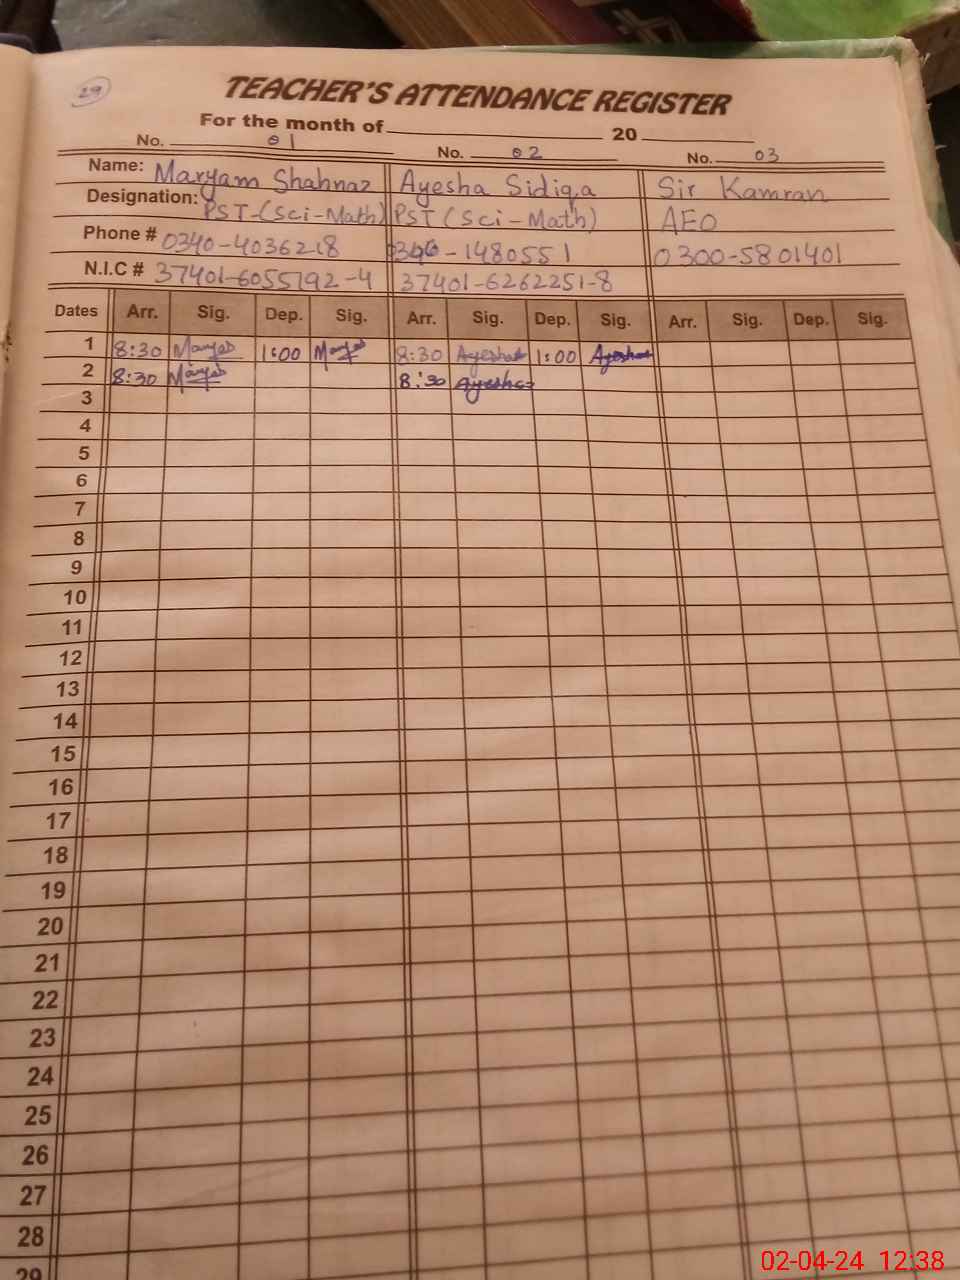 29
TEACHER'S ATTENDANCE REGISTER
For the month of 20
No. 01 No. 02 No. 03
Name: Maryam Shahnaz Ayesha Sidiqa Sir Kamran
Designation: PST-(Sci-Math) PST (Sci-Math) AEO
Phone # 0340-4036218 -1480551 0300-5801401
N.I.C # 37401-6055792-4 37401-6262251-8
Dates Arr. Sig. Dep. Sig. Arr. Sig. Dep. Sig. Arr. Sig. Dep. Sig.
1 8:30 1:00 8:30 Ayesha 1:00 Ayesha
2 8:30 8:30 Ayesha
3
4
5
6
7
8
9
10
11
12
13
14
15
16
17
18
19
20
21
22
23
24
25
26
27
28
29
02-04-24 12:38